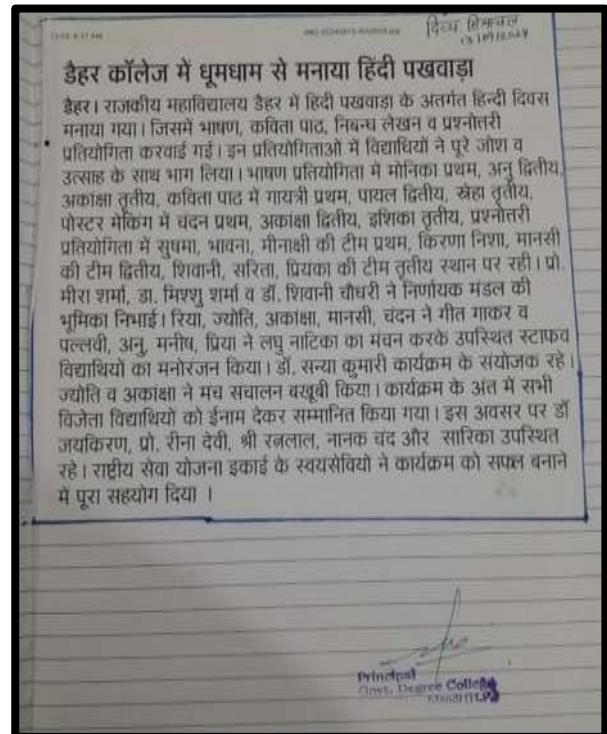 दिव्य हिमाचल
डैहर कॉलेज में धूमधाम से मनाया हिंदी पखवाड़ा
डैहर। राजकीय महाविद्यालय डैहर में हिदी पखवाडा के अतर्गत हिन्दी दिवस
मनाया गया। जिसमें भाषण, कविता पाठ, निबन्ध लेखन व प्रश्नोत्तरी
प्रतियोगिता करवाई गई। इन प्रतियोगिताओ में विद्यार्थियों ने पूरे जोश व
उत्साह के साथ भाग लिया। भाषण प्रतियोगिता में मोनिका प्रथम, अनु द्वितीय,
अकांक्षा तृतीय, कविता पाठ में गायत्री प्रथम, पायल द्वितीय, स्नेहा तृतीय,
पोस्टर मेकिंग में चंदन प्रथम, अकाक्षा द्वितीय, इशिका तृतीय, प्रश्नोत्तरी
प्रतियोगिता में सुषमा, भावना, मीनाक्षी की टीम प्रथम, किरणा निशा, मानसी
की टीम द्वितीय, शिवानी, सरिता, प्रियंका की टीम तृतीय स्थान पर रही। प्रो.
मीरा शर्मा, डा. मिश्शु शर्मा व डॉ. शिवानी चौधरी ने निर्णायक मंडल की
भूमिका निभाई। रिया, ज्योति, अकांक्षा, मानसी, चंदन ने गीत गाकर व
पल्लवी, अनु, मनीष, प्रिया ने लघु नाटिका का मंचन करके उपस्थित स्टाफव
विद्यार्थियों का मनोरजन किया। डॉ. सन्या कुमारी कार्यक्रम के संयोजक रहे।
ज्योति व अकांक्षा ने मच सचालन बखूबी किया। कार्यक्रम के अत में सभी
विजेता विद्यार्थियों को ईनाम देकर सम्मानित किया गया। इस अवसर पर डॉ
जयकिरण, प्रो. रीना देवी, श्री रत्नलाल, नानक चंद और सारिका उपस्थित
रहे। राष्ट्रीय सेवा योजना इकाई के स्वयसेवियो ने कार्यक्रम को सफल बनाने
मे पूरा सहयोग दिया ।
Principal
Govt. Degree College